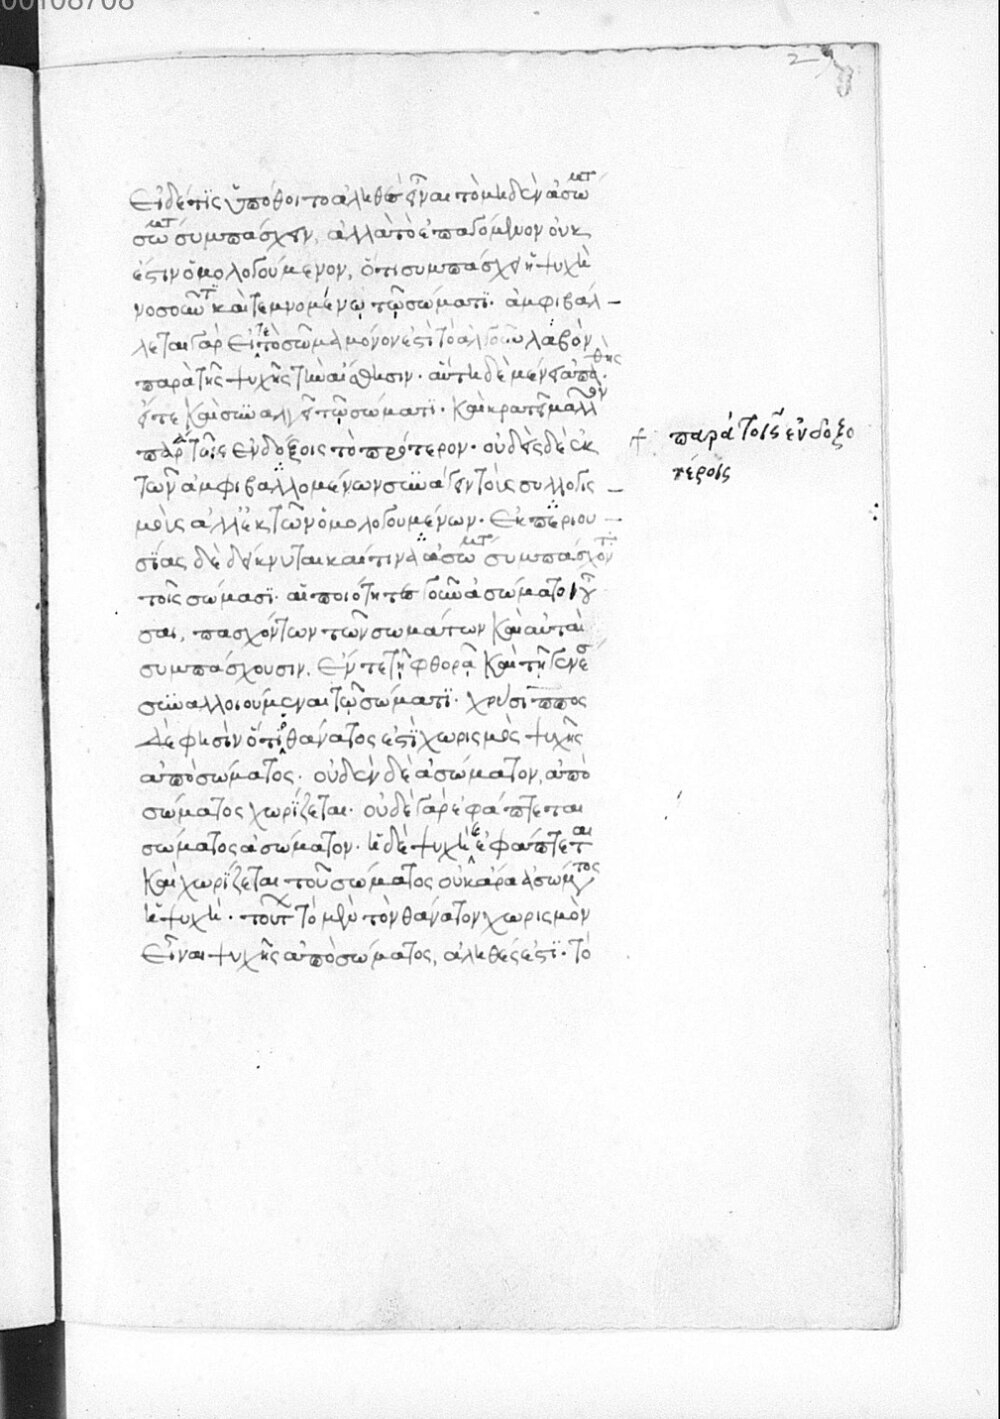 00108708
Εἰ δέ τις ὑπόθοιτο ἀληθὲς εἶναι τὸ μηδὲν ἀσώματ
σώματ συμπάσχειν, ἀλλὰ τὸ ἐπαγόμενον οὐκ
ἐστιν ὁμολογούμενον, ὅτι συμπάσχει ἡ ψυχὴ
νοσοῦντι καὶ τεμνομένῳ τῷ σώματι. ἀμφιβάλ –
λεται γὰρ εἴτε τὸ σῶμα μόνον ἐστὶ τὸ ἀλγοῦν λαβὸν
παρὰ τῆς ψυχῆς τὴν αἴσθησιν. αὕτη δὲ μένει ἀπαθὴς.
εἴτε καὶ συναλγεῖ τῷ σώματι. καὶ κρατεῖ μᾶλλον
παρὰ τοῖς ἐνδόξοις τὸ πρότερον. οὐδεὶς δὲ ἐκ
τῶν ἀμφιβαλλομένων συνάγειν τοὺς συλλογις –
μοὺς ἀλλ' ἐκ τῶν ὁμολογουμένων. Ἐκ περιου –
σίας δὲ δείκνυται καί τινα ἀσώματ συμπάσχοντ
τοῖς σώμασι. αἱ ποιότητες γοῦν ἀσώματοι
σαι, πασχόντων τῶν σωμάτων καὶ αὐταὶ
συμπάσχουσιν. Ἐν τε τῇ φθορᾷ καὶ τῇ γενέσ
συναλλοιούμεναι τῷ σώματι. χρύσιππος
δέ φησιν ὅτι ὁ θάνατος ἐστὶ χωρισμὸς ψυχῆς
ἀπὸ σώματος. οὐδὲν δὲ ἀσώματον, ἀπὸ
σώματος χωρίζεται. οὐδὲ γὰρ ἐφάπτεται
σώματος ἀσώματον. ἡ δὲ ψυχὴ ἐφάπτεται
καὶ χωρίζεται τοῦ σώματος οὐκ ἄρα ἀσώματος
ἡ ψυχή. τούτ τὸ μὲν τὸν θάνατον χωρισμὸν
εἶναι ψυχῆς ἀπὸ σώματος, ἀληθές ἐστι. τὸ
+ παρὰ τοῖς ἐνδοξο
τέροις